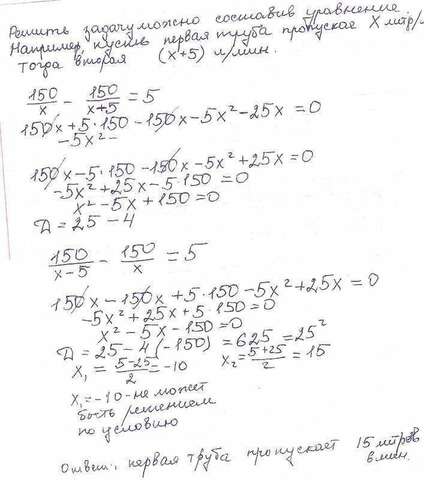 Решить задачу можно составив уравнение.
Например, пусть первая труба пропускае X литр/
тогда вторая (x+5) л/мин.
150/x - 150/(x+5) = 5
150x + 5·150 - 150x - 5x² - 25x = 0
-5x² -
150x - 5·150 - 150x - 5x² + 25x = 0
-5x² + 25x - 5·150 = 0
x² - 5x + 150 = 0
Д = 25 - 4
150/(x-5) - 150/x = 5
150x - 150x + 5·150 - 5x² + 25x = 0
-5x² + 25x + 5·150 = 0
x² - 5x - 150 = 0
Д = 25 - 4(-150) = 625 = 25²
x₁ = (5-25)/2 = -10 x₂ = (5+25)/2 = 15
x₁ = -10 - не может
быть решением
по условию
Ответ: первая труба пропускает 15 литров
в мин.